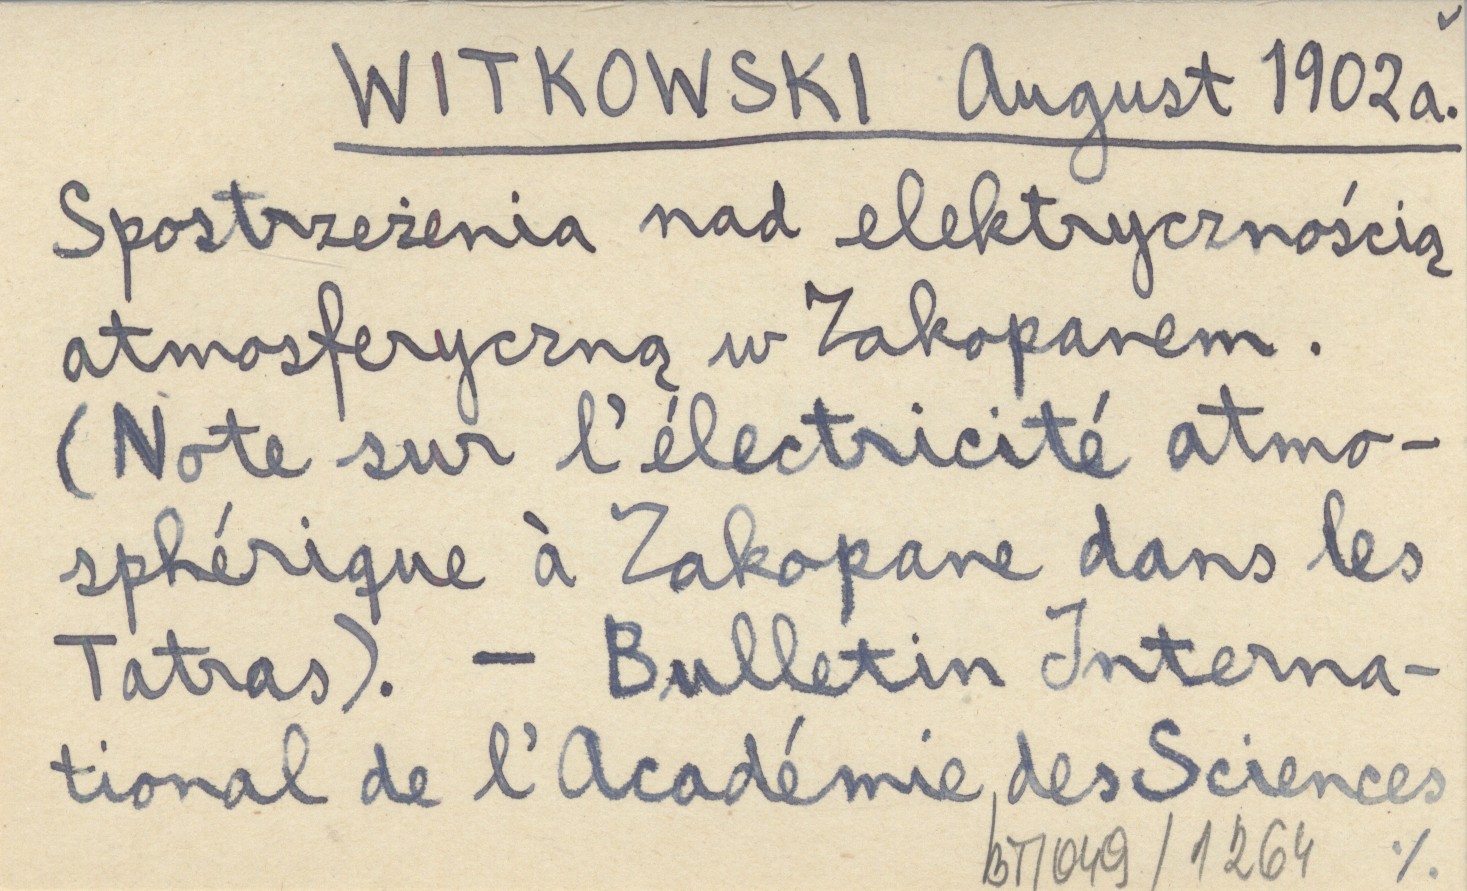 WITKOWSKI August 1902a.
Spostrzeżenia nad elektrycznością
atmosferyczną w Zakopanem.
(Note sur l'électricité atmo-
sphérique à Zakopane dans les
Tatras). — Bulletin Interna-
tional de l'Académie des Sciences
BT/049/1264 ·/.